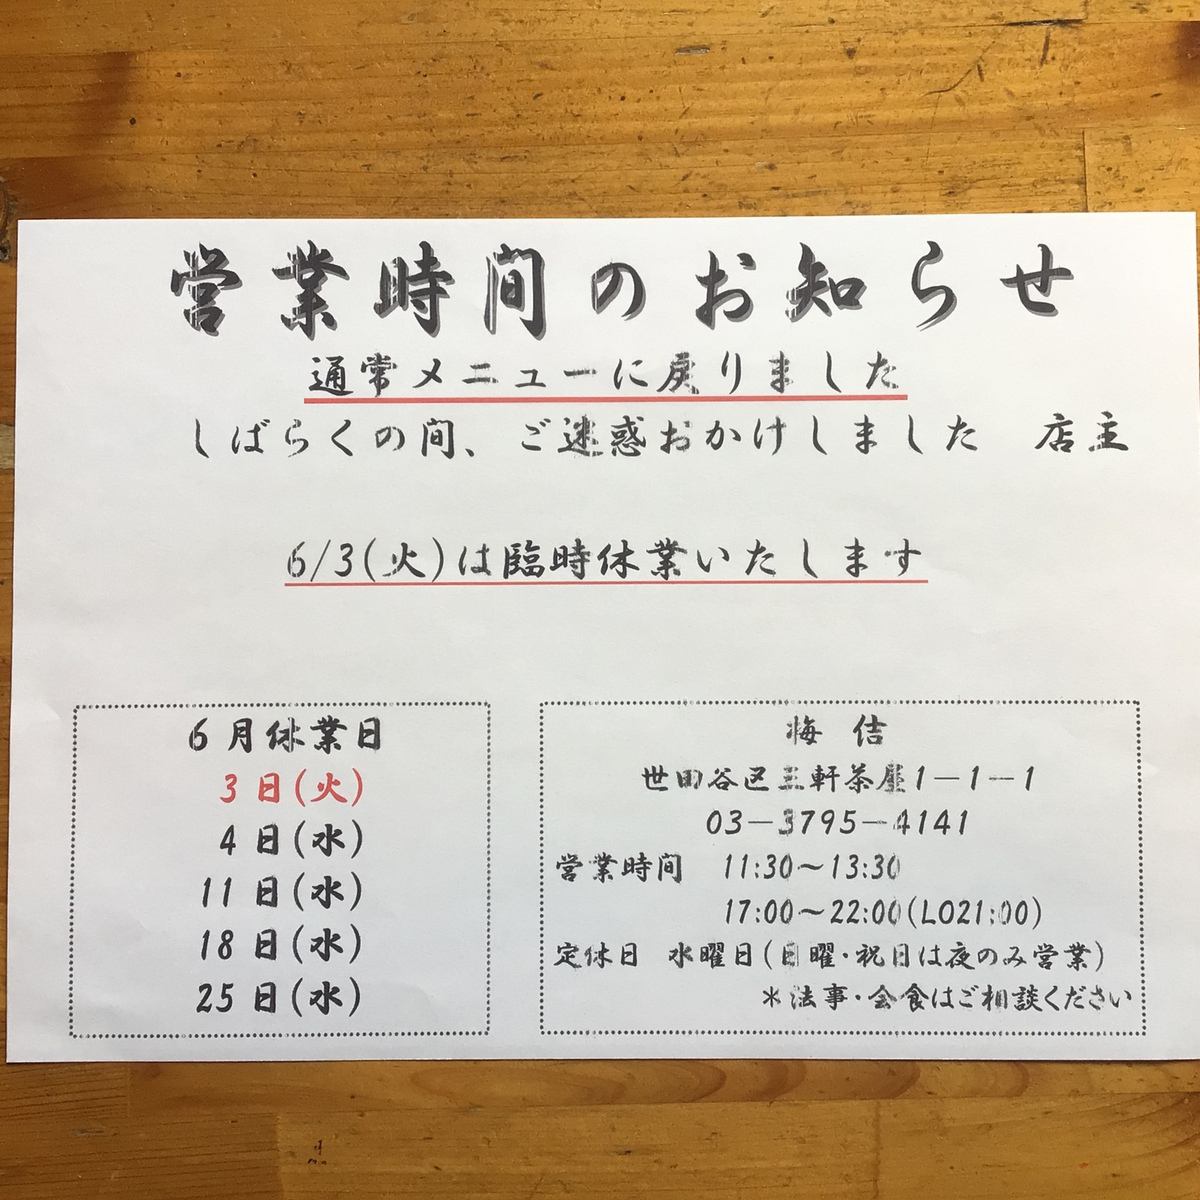 営業時間のお知らせ
通常メニューに戻りました
しばらくの間、ご迷惑おかけしました　店主
6/3(火)は臨時休業いたします
6月休業日
3日(火)
4日(水)
11日(水)
18日(水)
25日(水)
梅佶
世田谷区三軒茶屋1－1－1
03－3795－4141
営業時間　11:30～13:30
17:00～22:00(LO21:00)
定休日　水曜日(日曜・祝日は夜のみ営業)
＊法事・会食はご相談ください